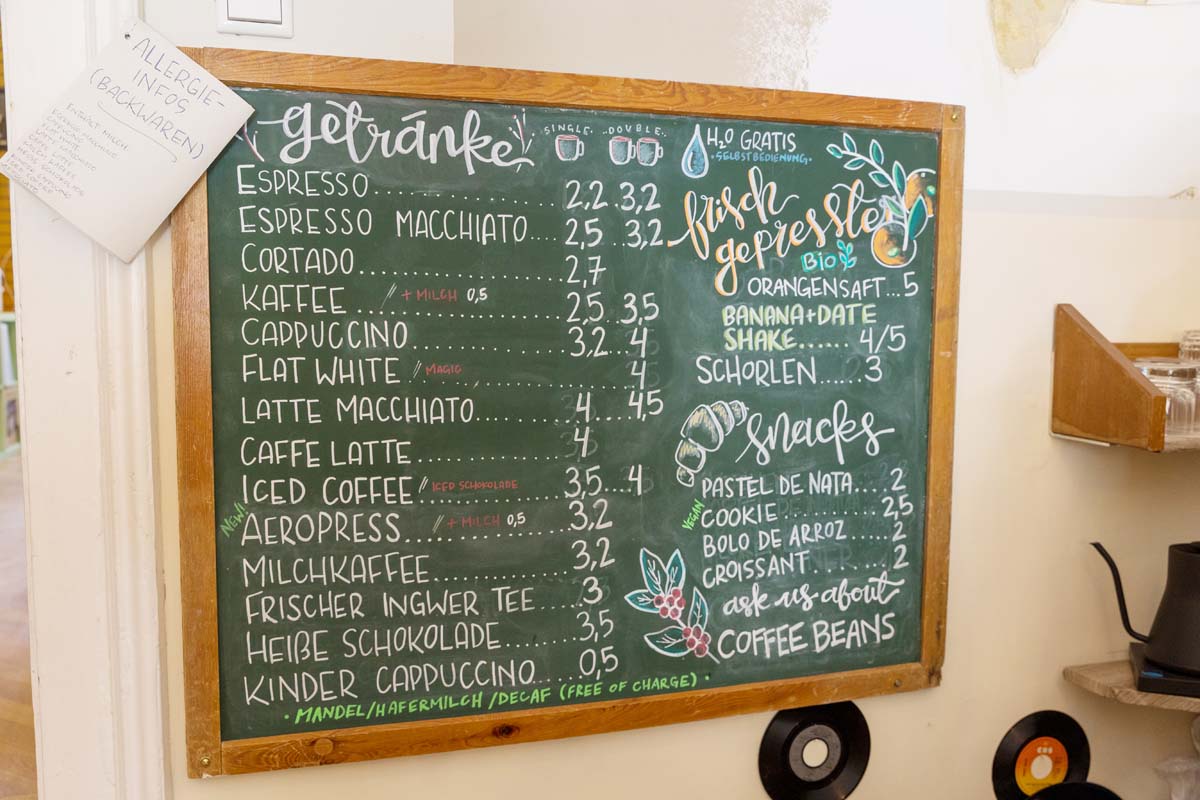 ALLERGIE-
INFOS
(BACKWAREN)
ENTHÄLT MILCH
getränke
SINGLE DOUBLE
ESPRESSO 2,2 3,2
ESPRESSO MACCHIATO.... 2,5 3,2
CORTADO 2,7
KAFFEE // + MILCH 0,5 2,5 3,5
CAPPUCCINO 3,2 4
FLAT WHITE // MAGIC 4
LATTE MACCHIATO 4 4,5
CAFFE LATTE 4
ICED COFFEE // ICED SCHOKOLADE 3,5 4
NEW!
AEROPRESS // + MILCH 0,5 3,2
MILCHKAFFEE 3,2
FRISCHER INGWER TEE 3
HEIßE SCHOKOLADE 3,5
KINDER CAPPUCCINO 0,5
· MANDEL/HAFERMILCH /DECAF (FREE OF CHARGE) ·
H2O GRATIS
·SELBSTBEDIENUNG·
frisch
gepresste
Bio
ORANGENSAFT...5
BANANA+DATE
SHAKE...... 4/5
SCHORLEN......3
snacks
PASTEL DE NATA....2
VEGAN
COOKIE 2,5
BOLO DE ARROZ.....2
CROISSANT 2
ask us about
COFFEE BEANS
CBS